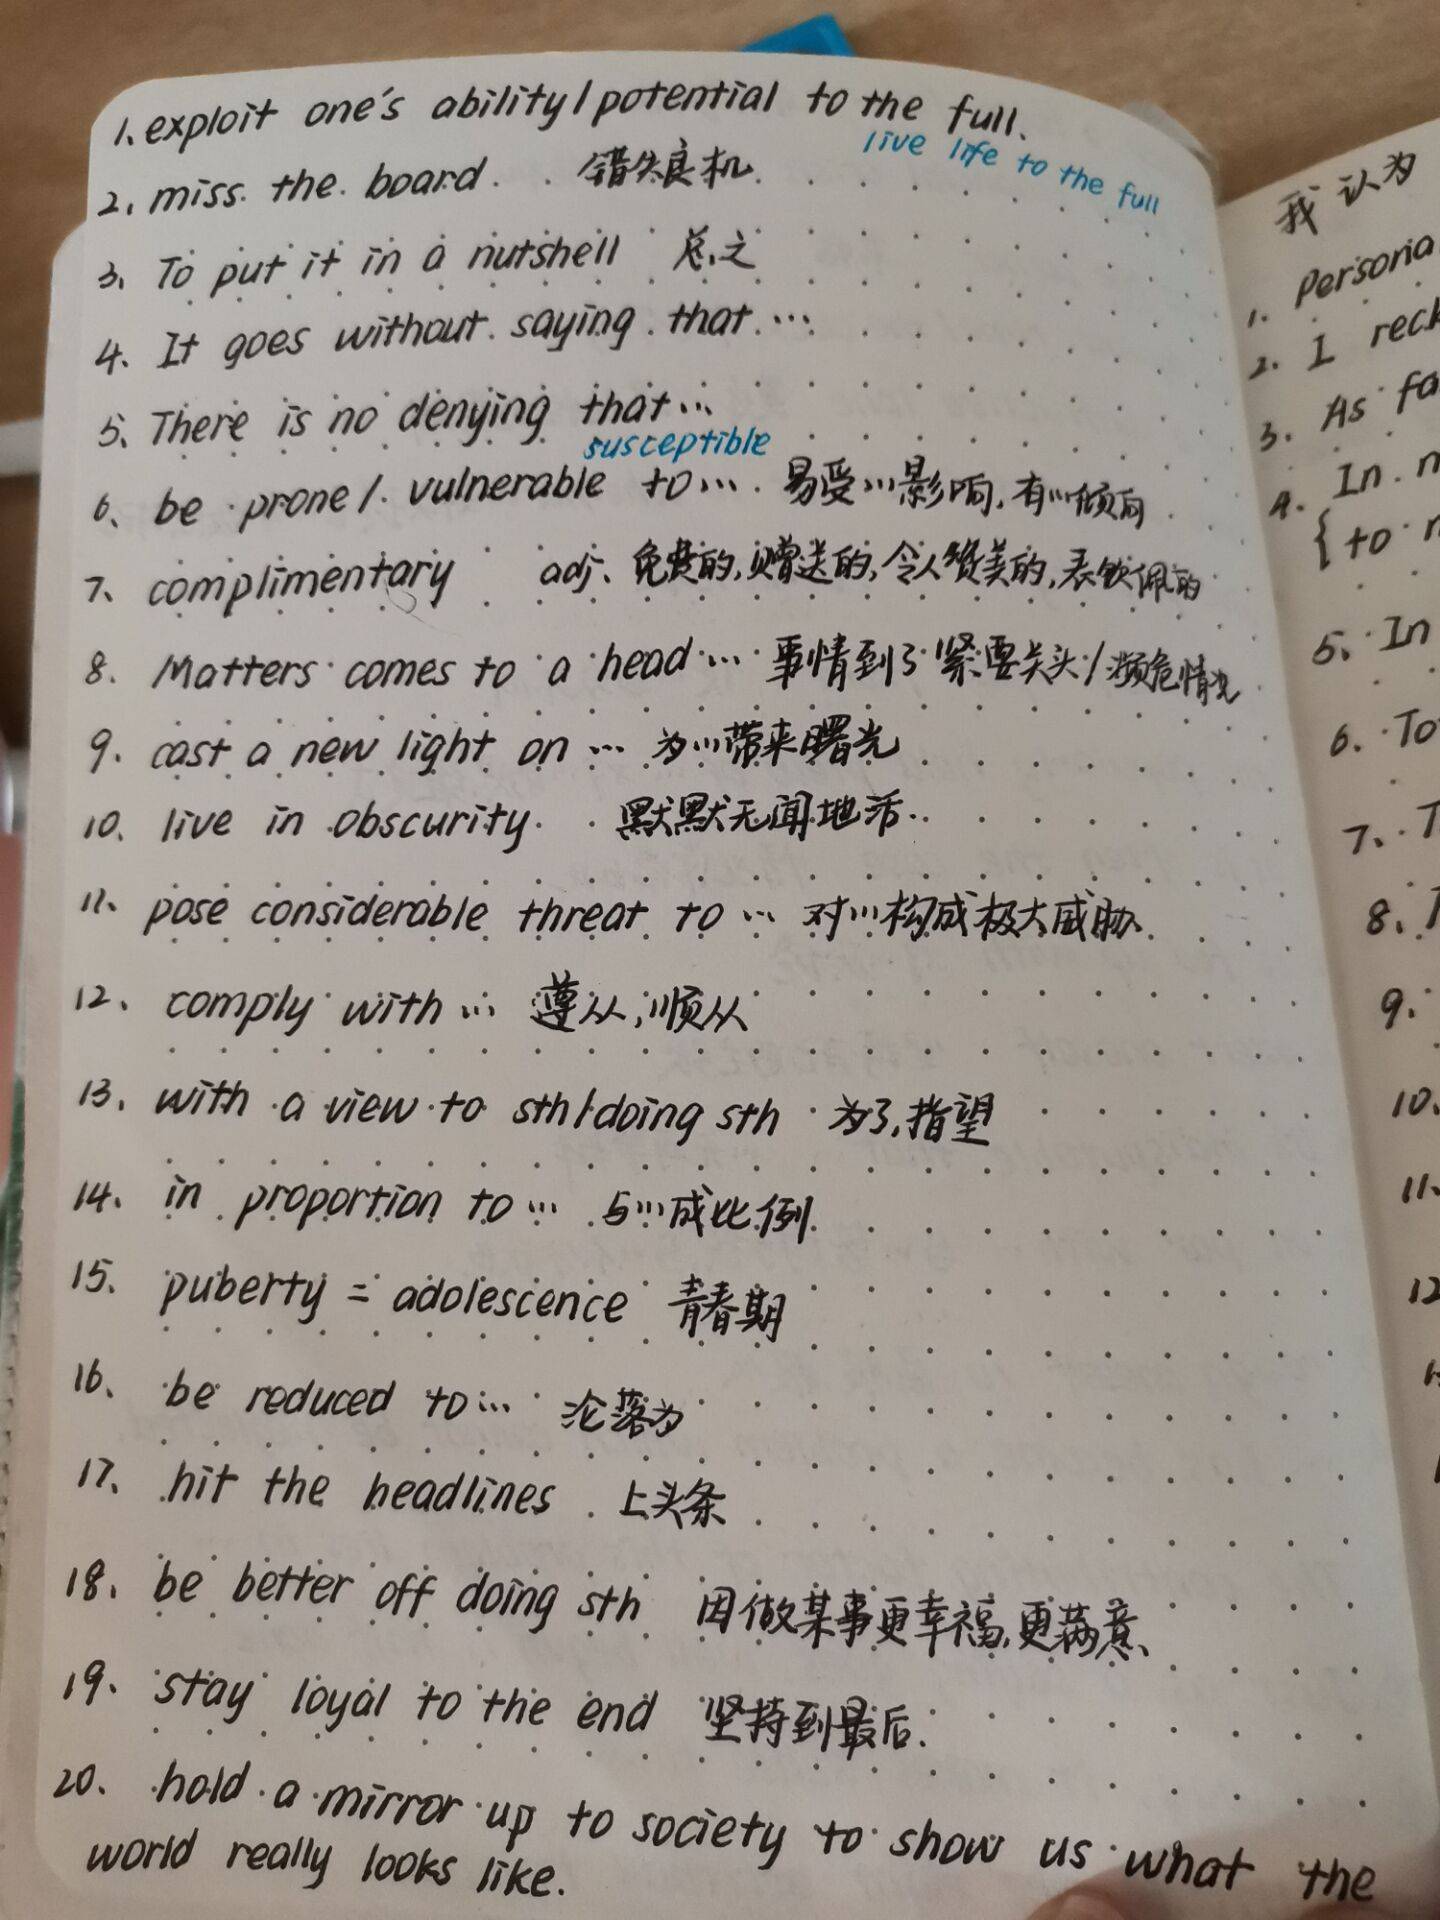 1. exploit one's ability/potential to the full.
live life to the full
2. miss the board 错失良机
3. To put it in a nutshell 总之
4. It goes without saying that ...
5. There is no denying that ...
susceptible
6. be prone/vulnerable to ... 易受...影响,有...倾向
7. complimentary adj. 免费的,赠送的,令人赞美的,表钦佩的
8. Matters comes to a head ... 事情到了紧要关头/濒危情况
9. cast a new light on ... 为...带来曙光
10. live in obscurity 默默无闻地活
11. pose considerable threat to ... 对...构成极大威胁
12. comply with ... 遵从,顺从
13. with a view to sth/doing sth 为了,指望
14. in proportion to ... 与...成比例
15. puberty = adolescence 青春期
16. be reduced to ... 沦落为
17. hit the headlines 上头条
18. be better off doing sth 因做某事更幸福,更满意
19. stay loyal to the end 坚持到最后.
20. hold a mirror up to society to show us what the
world really looks like.
我认为
1. Persona
2. I reck
3. As fa
4. In m
{to m
5. In
6. To
7. T
8.
9.
10.
11.
12